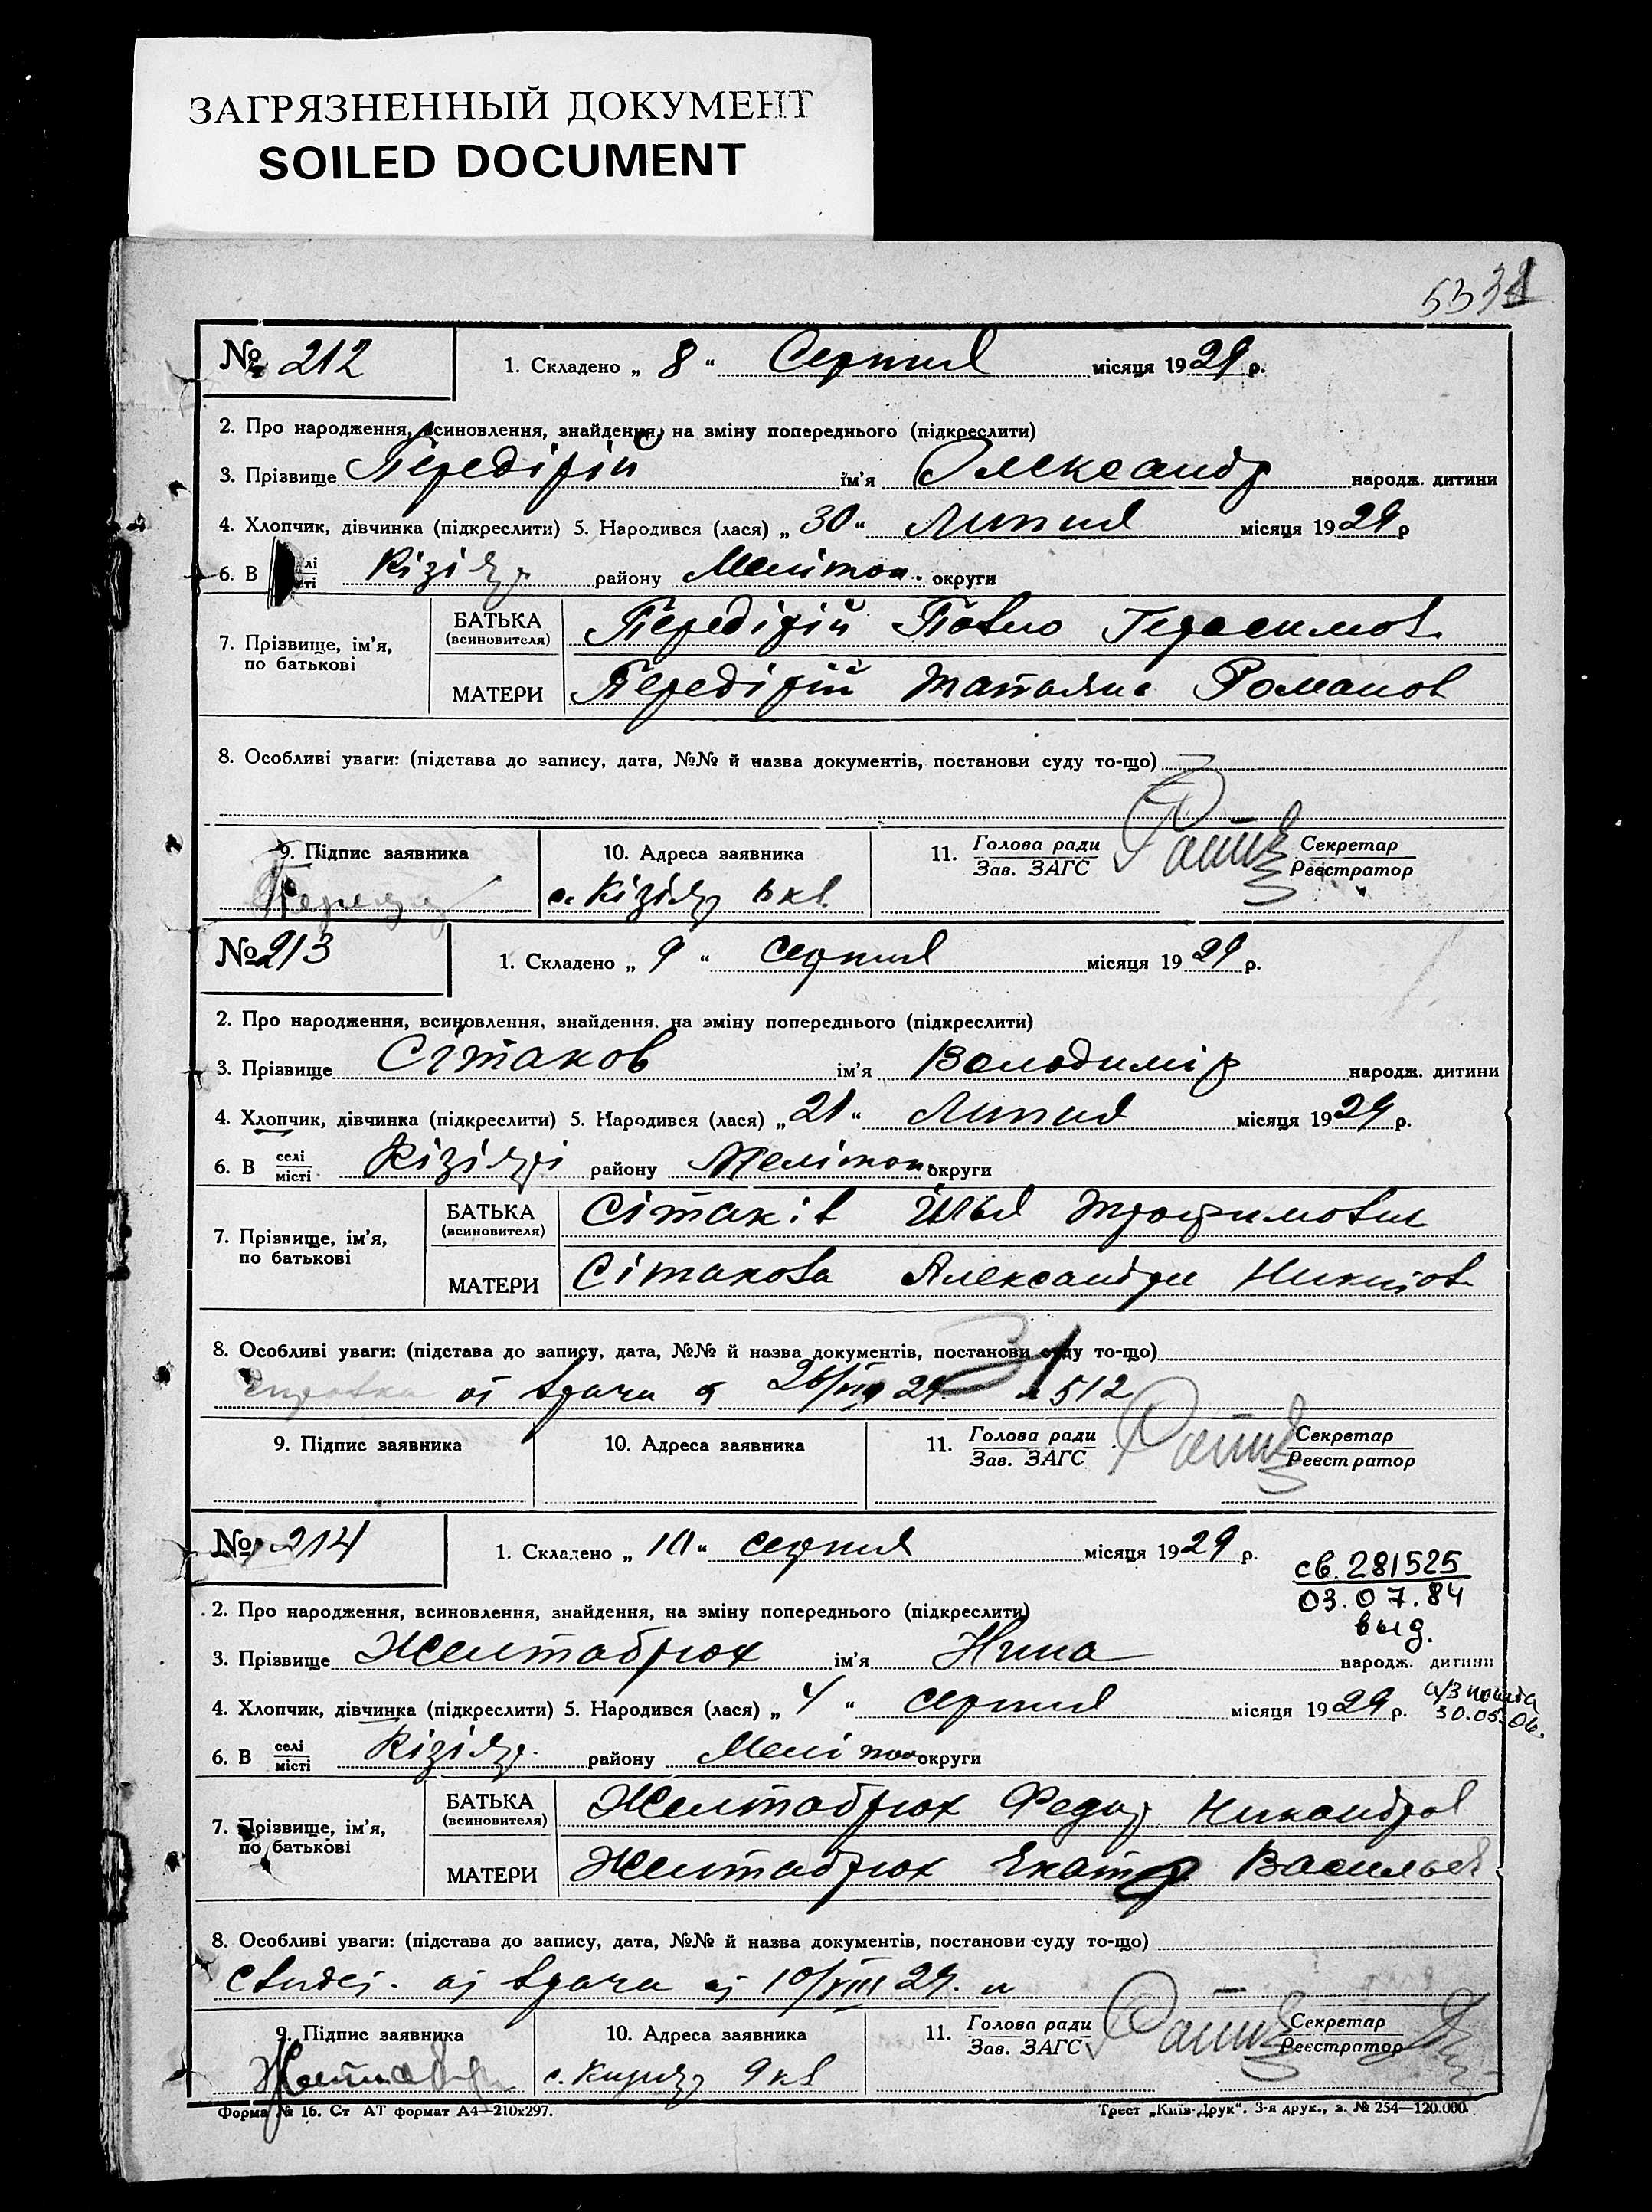 ЗАГРЯЗНЕННЫЙ ДОКУМЕНТ
SOILED DOCUMENT
№ 212
1. Складено „ 8 “ Серпня місяця 1929 р.
2. Про народження, всиновлення, знайдення, на зміну попереднього (підкреслити)
3. Прізвище Передірій ім'я Олександр народж. дитини
4. Хлопчик, дівчинка (підкреслити) 5. Народився (лася) „ 30 “ Липня місяця 1929 р
6. В Кізіяр району Меліtоп. округи
7. Прізвище, ім'я, по батькові
БАТЬКА (всиновителя) Передірій Павло Герасимов
МАТЕРИ Передірій Татьяна Романов
8. Особливі уваги: (підстава до запису, дата, №№ й назва документів, постанови суду то-що)
9. Підпис заявника
10. Адреса заявника
11. Голова ради Зав. ЗАГС
Секретар Реєстратор
с. Кізіяр 6 кв
№ 213
1. Складено „ 9 “ серпня місяця 1929 р.
2. Про народження, всиновлення, знайдення, на зміну попереднього (підкреслити)
3. Прізвище Сітаков ім'я Володимір народж. дитини
4. Хлопчик, дівчинка (підкреслити) 5. Народився (лася) „ 21 “ Липня місяця 1929 р.
6. В селі місті Кізіярі району Мелітоп округи
7. Прізвище, ім'я, по батькові
БАТЬКА (всиновителя) Сітаків Ілья Трофимович
МАТЕРИ Сітакова Александра Никитов
8. Особливі уваги: (підстава до запису, дата, №№ й назва документів, постанови суду то-що)
справка от врача от 26/VII 29. № 512
9. Підпис заявника
10. Адреса заявника
11. Голова ради Зав. ЗАГС
Секретар Реєстратор
№ 214
1. Складено „ 10 “ серпня місяця 1929 р.
св. 281525
03.07.84
выд.
2. Про народження, всиновлення, знайдення, на зміну попереднього (підкреслити)
3. Прізвище Желтабрюх ім'я Нина народж. дитини
4. Хлопчик, дівчинка (підкреслити) 5. Народився (лася) „ 4 “ серпня місяця 1929 р.
30.05.06.
6. В селі місті Кізіяр. району Меліtоп округи
7. Прізвище, ім'я, по батькові
БАТЬКА (всиновителя) Желтабрюх Федор Никандров
МАТЕРИ Желтабрюх Екатер Васильев
8. Особливі уваги: (підстава до запису, дата, №№ й назва документів, постанови суду то-що)
свидет. от врача от 10/VIII 29. №
9. Підпис заявника
10. Адреса заявника
11. Голова ради Зав. ЗАГС
Секретар Реєстратор
Желтабрюх
с. Кизияр 9 кв
Форма № 16. Ст АТ формат А4—210х297.
Трест „Київ-Друк“. 3-я друк., з. № 254—120.000.